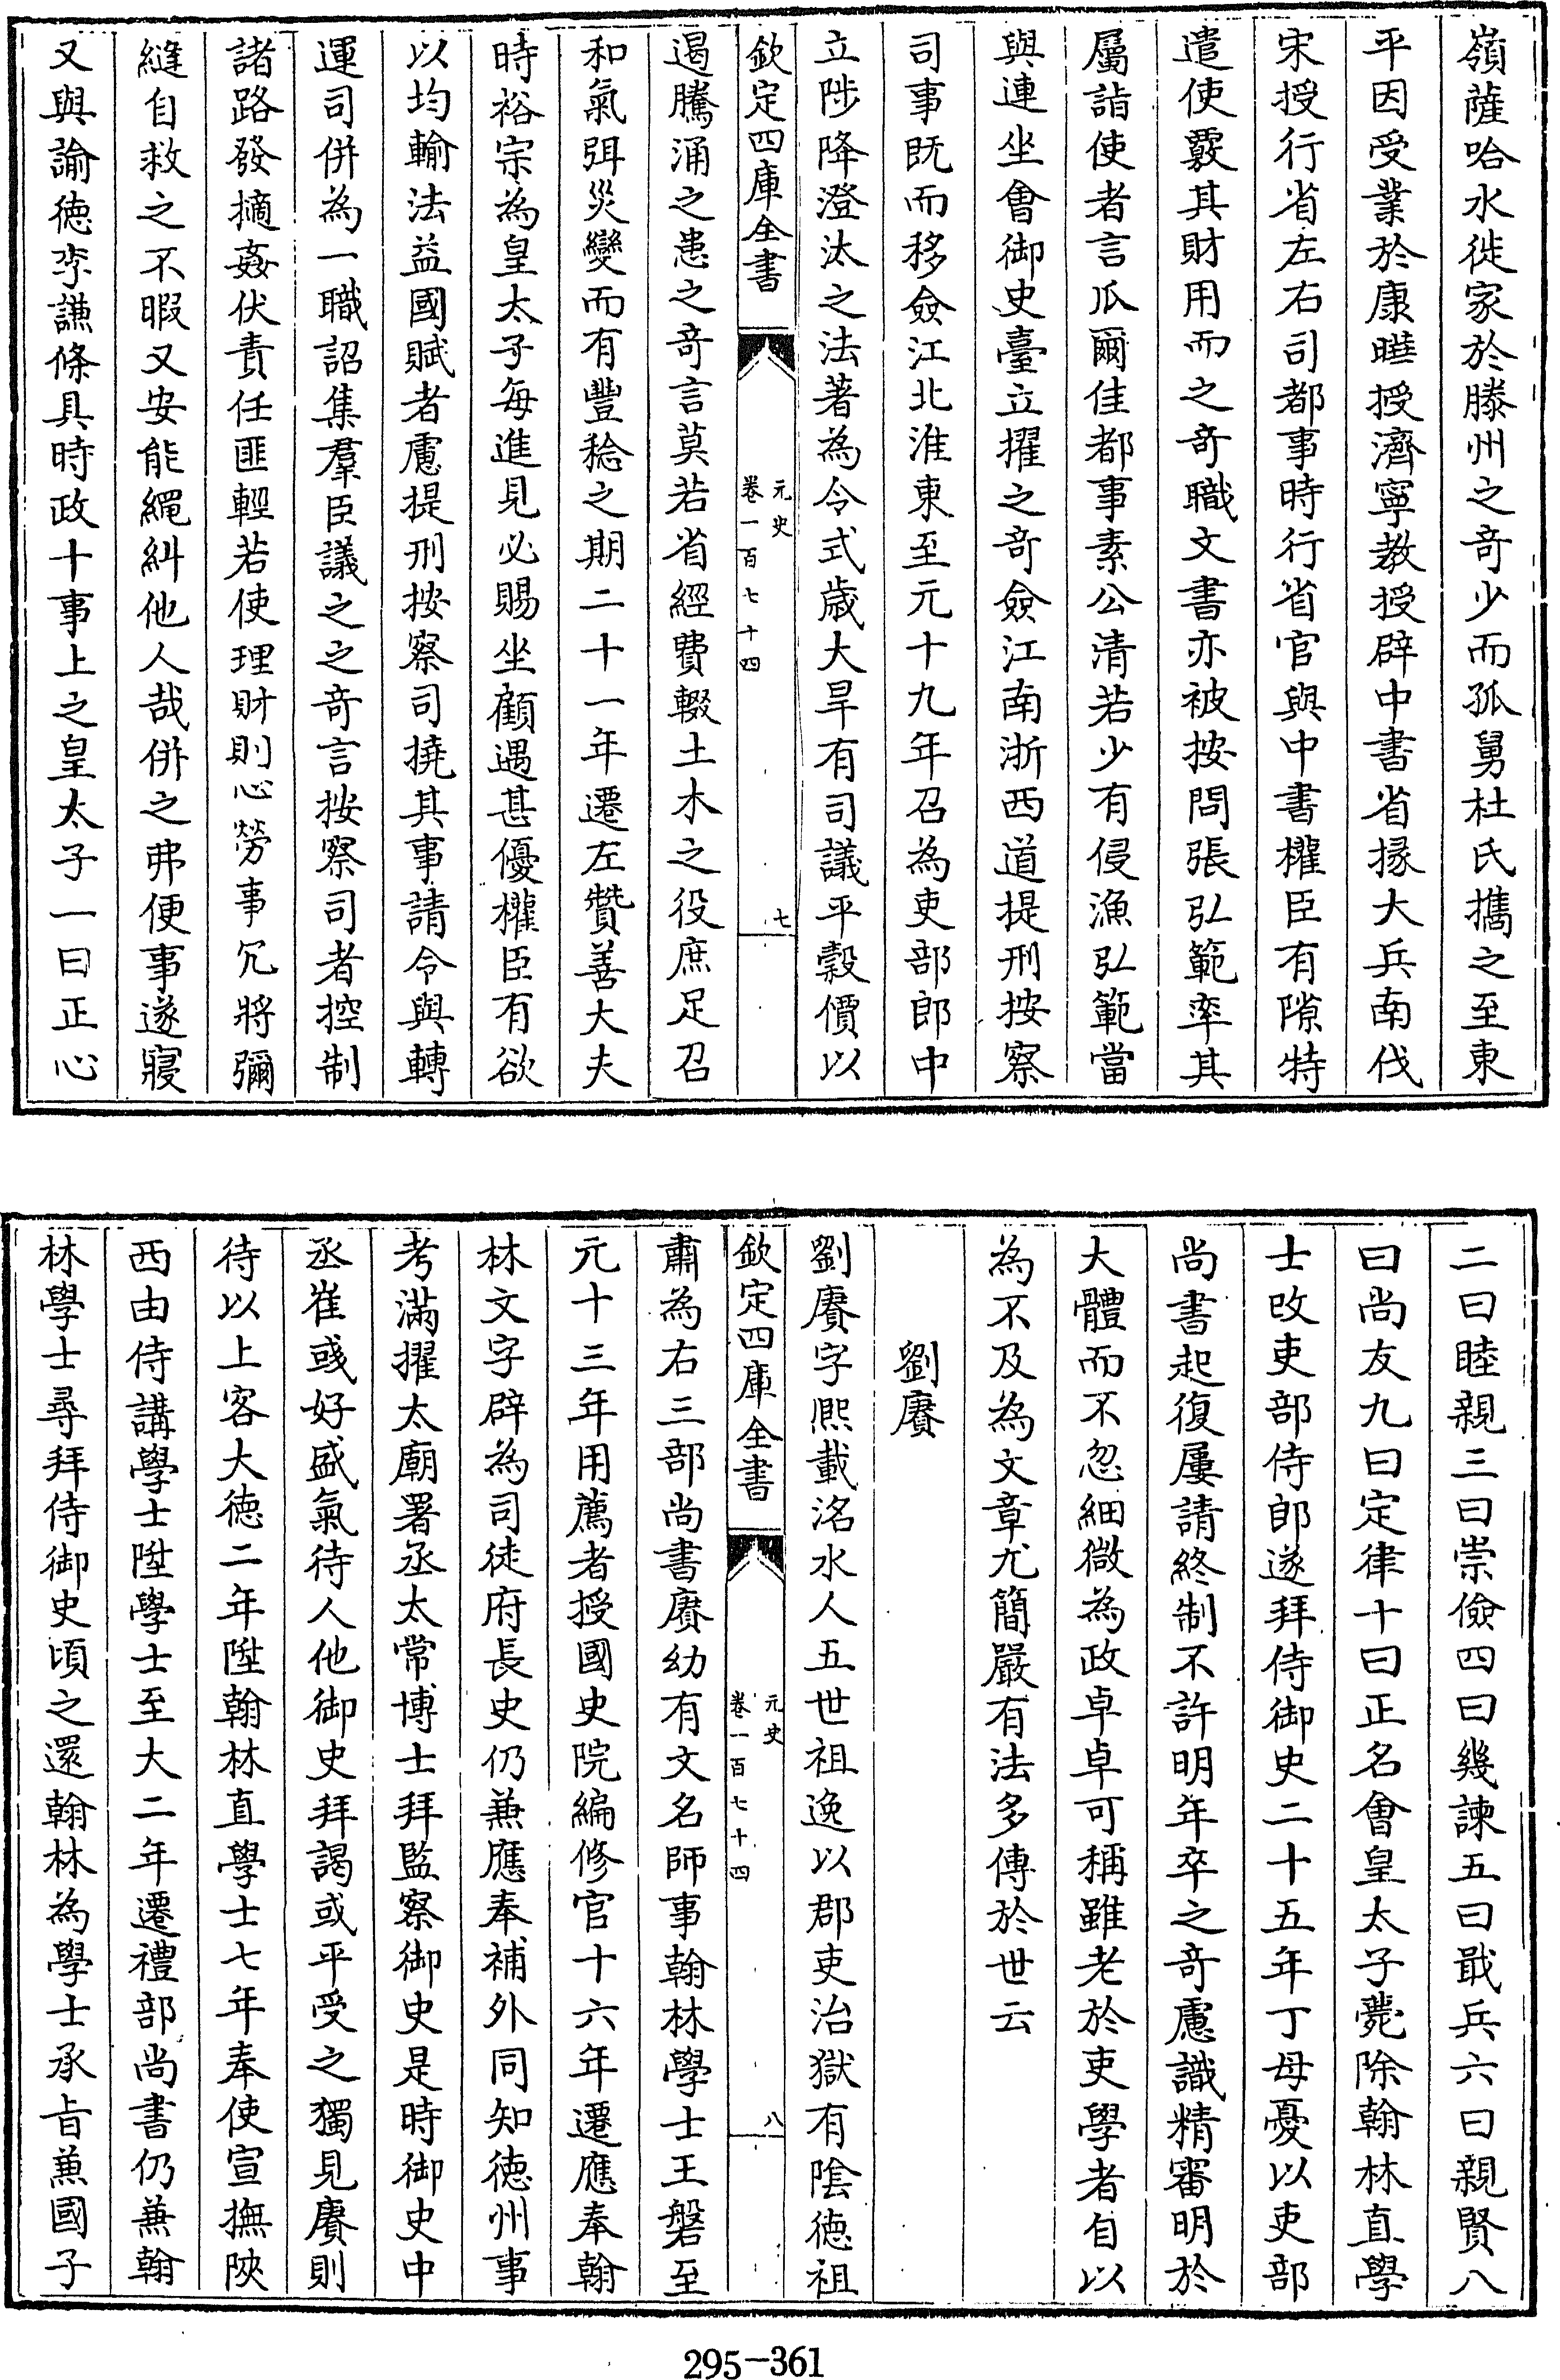 嶺薩哈水徙家於滕州之奇少而孤舅杜氏攜之至東
平因受業於康曄授濟寧教授辟中書省掾大兵南伐
宋授行省左右司都事時行省官與中書權臣有隙特
遣使覈其財用而之奇職文書亦被按問張弘範率其
屬詣使者言瓜爾佳都事素公清若少有侵漁弘範當
與連坐會御史臺立擢之奇僉江南浙西道提刑按察
司事既而移僉江北淮東至元十九年召為吏部郎中
立陟降澄汰之法著為令式歲大旱有司議平穀價以
欽定四庫全書
元史
卷一百七十四
七
遏騰涌之患之奇言莫若省經費輟土木之役庶足召
和氣弭災變而有豐稔之期二十一年遷左贊善大夫
時裕宗為皇太子每進見必賜坐顧遇甚優權臣有欲
以均輸法益國賦者慮提刑按察司撓其事請令與轉
運司併為一職詔集羣臣議之之奇言按察司者控制
諸路發擿姦伏責任匪輕若使理財則心勞事冗將彌
縫自救之不暇又安能繩糾他人哉併之弗便事遂寢
又與諭德李謙條具時政十事上之皇太子一曰正心
二曰睦親三曰崇儉四曰幾諫五曰戢兵六曰親賢八
曰尚友九曰定律十曰正名會皇太子薨除翰林直學
士改吏部侍郎遂拜侍御史二十五年丁母憂以吏部
尚書起復屢請終制不許明年卒之奇慮識精審明於
大體而不忽細微為政卓卓可稱雖老於吏學者自以
為不及為文章尤簡嚴有法多傳於世云
劉賡
劉賡字熙載洺水人五世祖逸以郡吏治獄有陰德祖
欽定四庫全書
元史
卷一百七十四
八
肅為右三部尚書賡幼有文名師事翰林學士王磐至
元十三年用薦者授國史院編修官十六年遷應奉翰
林文字辟為司徒府長史仍兼應奉補外同知德州事
考滿擢太廟署丞太常博士拜監察御史是時御史中
丞崔彧好盛氣待人他御史拜謁或平受之獨見賡則
待以上客大德二年陞翰林直學士七年奉使宣撫陝
西由侍講學士陞學士至大二年遷禮部尚書仍兼翰
林學士尋拜侍御史頃之還翰林為學士承旨兼國子
295-361